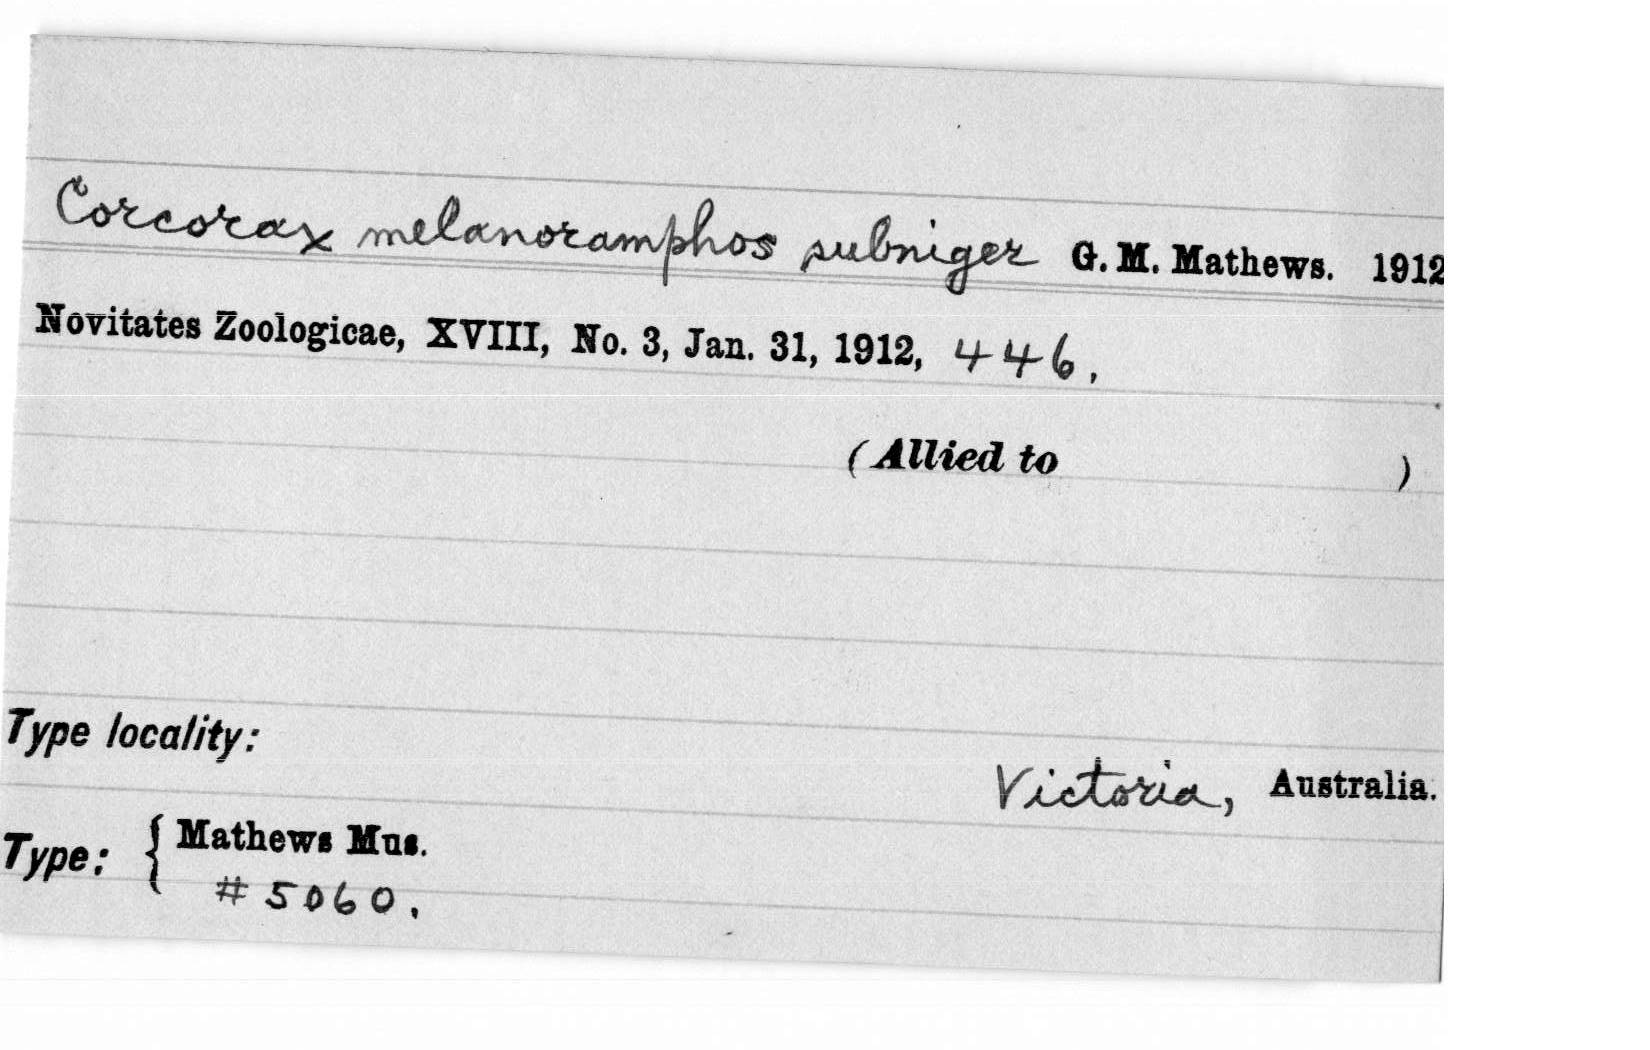 Corcorax melanoramphos subniger G. M. Mathews. 1912
Novitates Zoologicae, XVIII, No. 3, Jan. 31, 1912, 446.
(Allied to )
Type locality:
Victoria, Australia.
Type: { Mathews Mus.
# 5060.